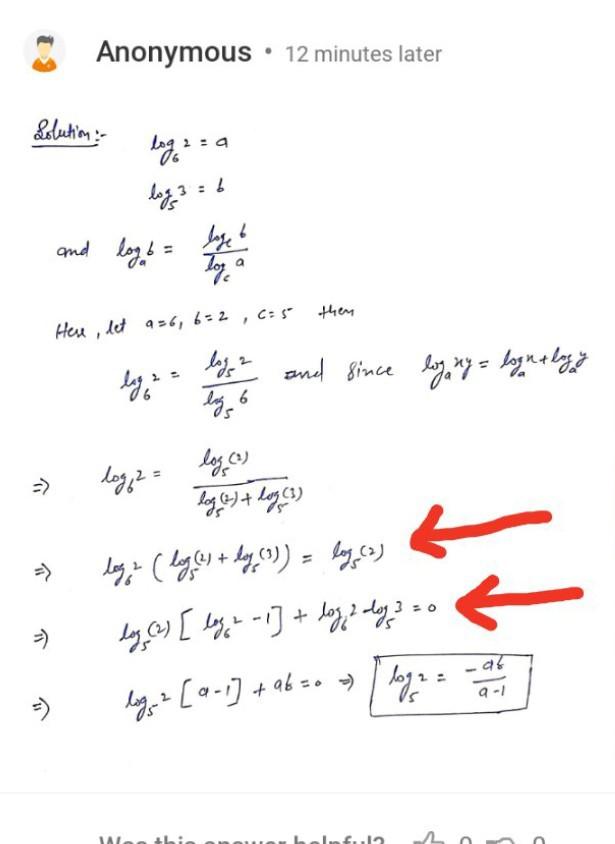 Anonymous • 12 minutes later
Solution:-
log₆ 2 = a
log₅ 3 = b
and logₐ b = log_c b / log_c a
Here, let a=6, b=2, c=5 then
log₆ 2 = log₅ 2 / log₅ 6 and since logₐ xy = logₐ x + logₐ y
⇒ log₆ 2 = log₅(2) / log₅(2) + log₅(3)
⇒ log₆ 2 ( log₅(2) + log₅(3) ) = log₅(2)
⇒ log₅(2) [ log₆ 2 - 1 ] + log₆ 2 · log₅ 3 = 0
⇒ log₅ 2 [a-1] + ab = 0 ⇒ log₅ 2 = -ab / a-1
Was this answer helpful? 0 0